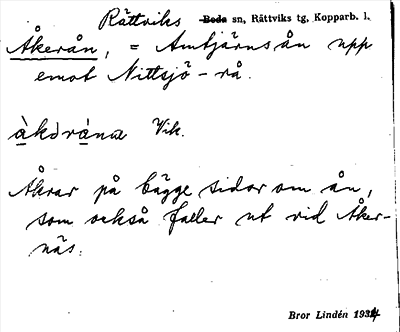 Rättviks Boda sn, Rättviks tg, Kopparb. l.
Åkerån, = Amtjärnsån upp
emot Nittsjö-rå.
àkǝrána Vik.
Åkrar på bägge sidor om ån,
som också faller ut vid Åker-
näs.
Bror Lindén 1934